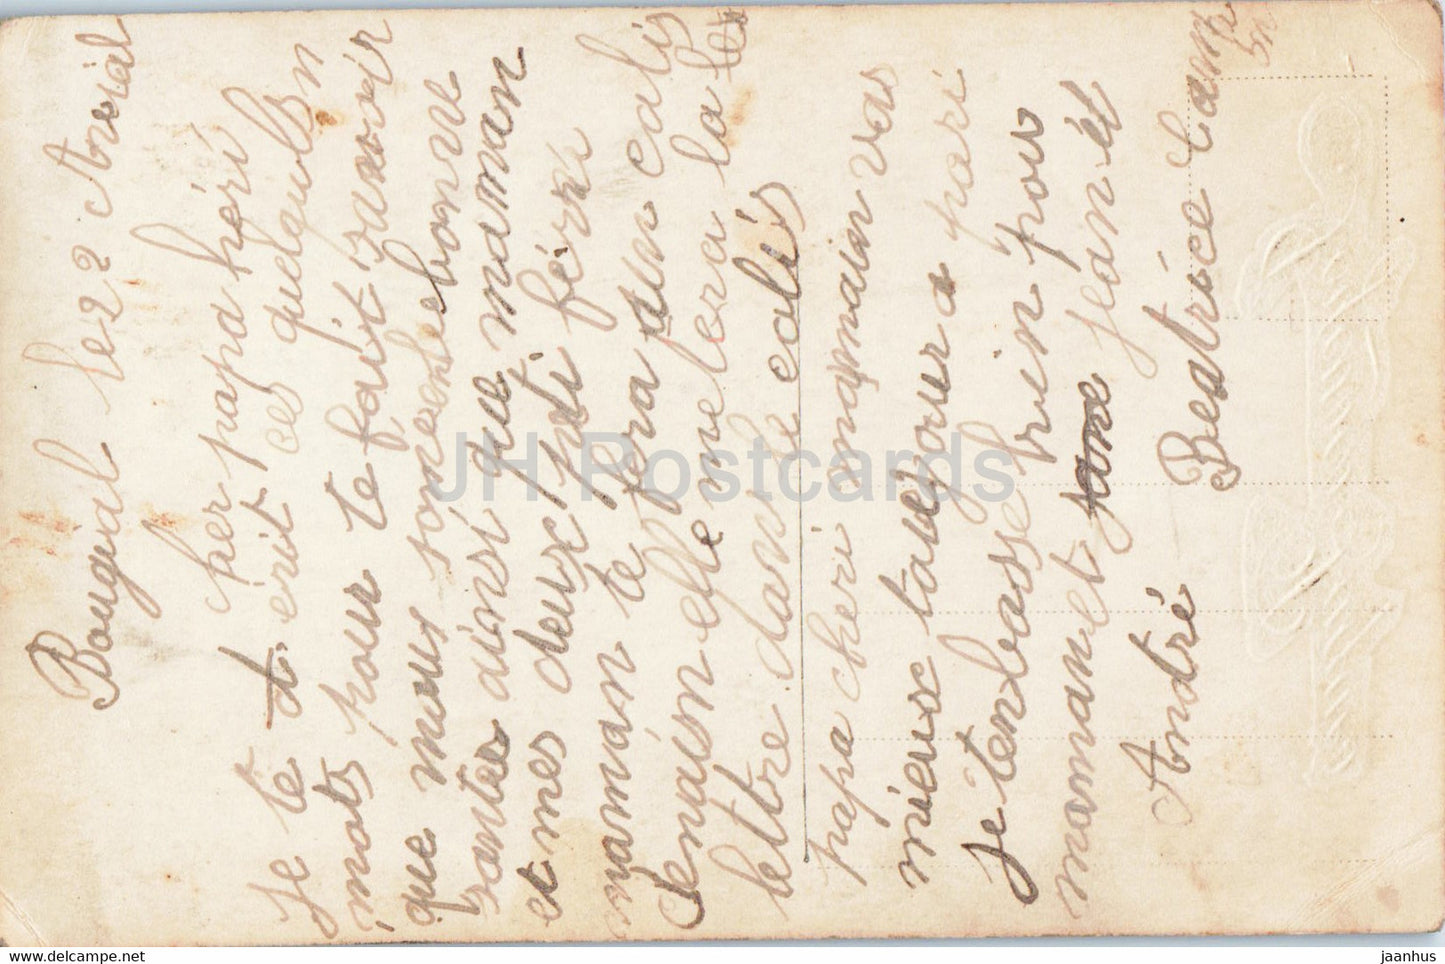 Bougial le 22 Avrial
her papa héri
Je te t érit ces quelqulsn
mots pour te fait savoir
que nous sommes bonne
santée ainsi que maman
et mes deux peti férre
maman te fera un calis
demaison elle me fera la
lettre dans le calis
papa cheri maman vas
mieux taugour a pari
je tenbasse bien pour
maman et jean et
André Beatrice Cam
JH Postcards
www.delcampe.net
jaanhus